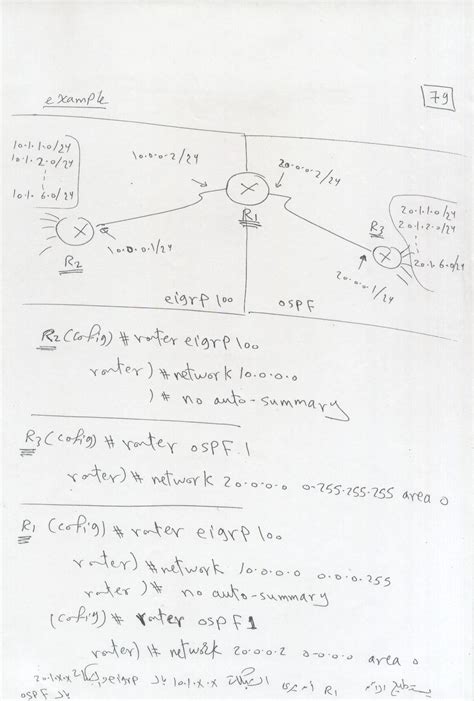 79
example
10.1.1.0/24
10.1.2.0/24
10.1.6.0/24
10.0.0.2/24
20.0.0.2/24
R1
R3
20.1.1.0/24
20.1.2.0/24
20.1.6.0/24
10.0.0.1/24
R2
20.0.0.1/24
eigrp 100
OSPF
R2 (config) # router eigrp 100
router) # network 10.0.0.0
) # no auto-summary
R3 (config) # router OSPF 1
router) # network 20.0.0.0 0.255.255.255 area 0
R1 (config) # router eigrp 100
router) # network 10.0.0.0 0.0.0.255
router) # no auto-summary
(config) # router OSPF 1
router) # network 20.0.0.2 0.0.0.0 area 0
R1 الشبكات 10.1.x.x بال eigrp 20.1.x.x
بال OSPF